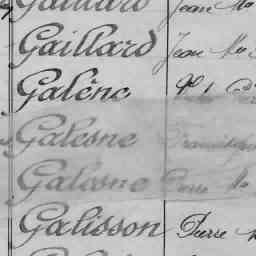 Gaillard Jean Mie
Gaillard Jean Mie
Galène
Galesne
Galesne Pierre
Galisson Pierre